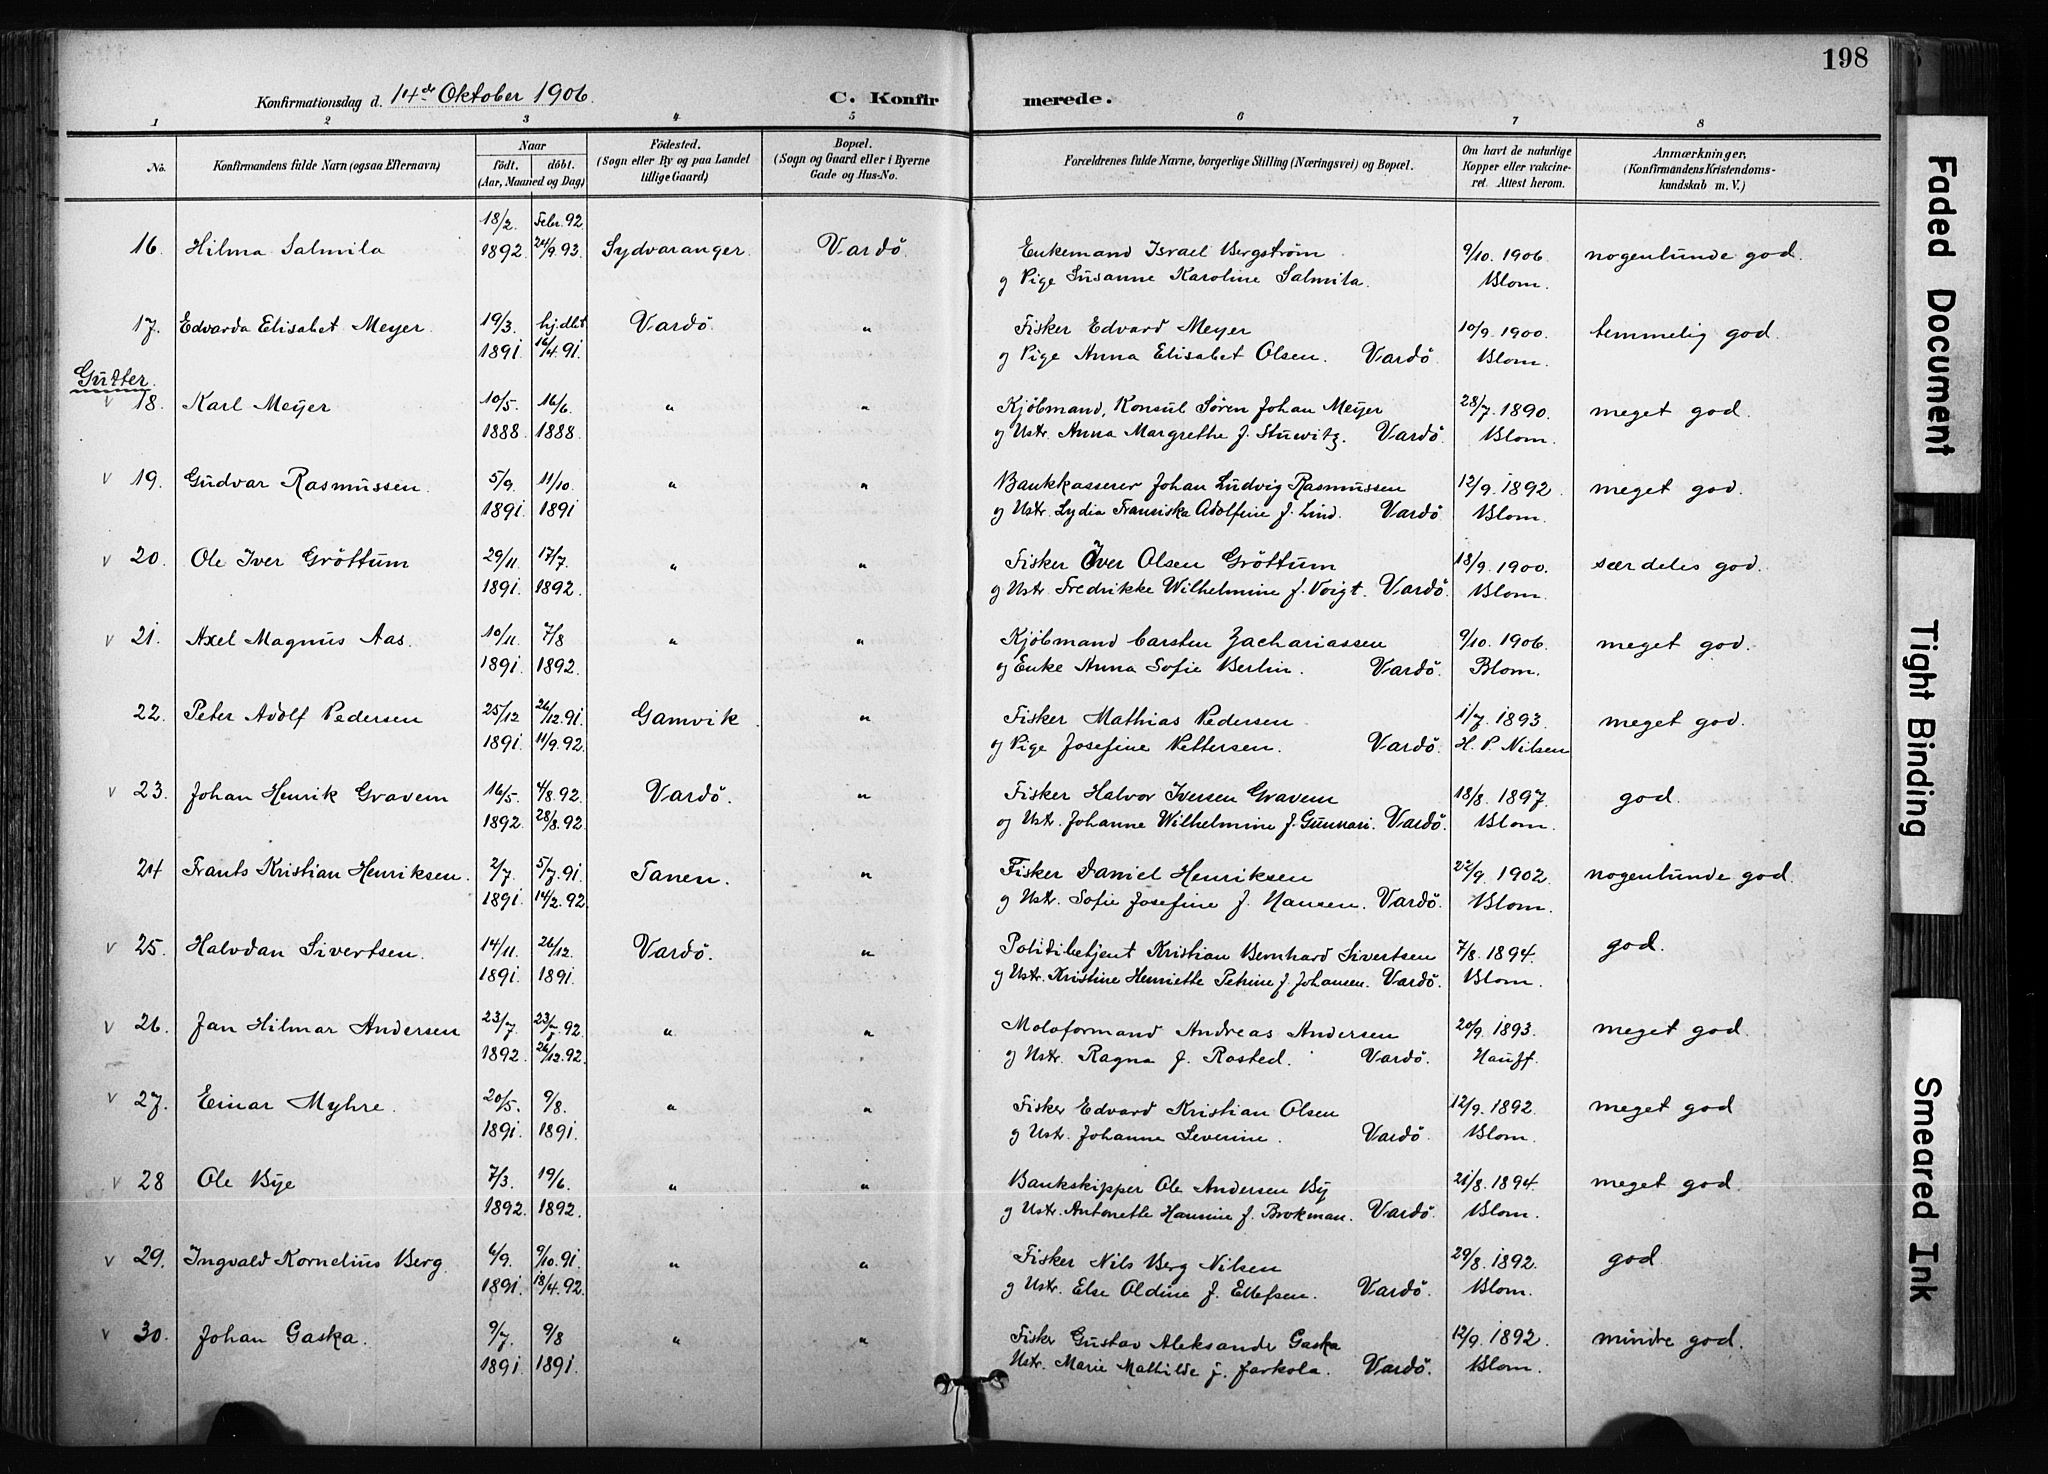 198
Konfirmationsdag d. 14de Oktober 1906. C. Konfirmerede.
1 2 3 4 5 6 7 8
No. Konfirmandens fulde Navn (ogsaa Efternavn) Naar født. døbt. (Aar, Maaned og Dag) Fødested. (Sogn eller By og paa Landet tillige Gaard) Bopæl. (Sogn og Gaard eller i Byerne Gade og Hus-No. Forældrenes fulde Navne, borgerlige Stilling (Næringsvei) og Bopæl. Om havt de naturlige Kopper eller vakcineret. Attest herom. Anmærkninger. (Konfirmandens Kristendomskundskab m. V.)
18/2. Febr. 92
16. Hilma Salmila 1892 24/9. 93. Sydvaranger. Vardö. Enkemand Israel Bergström 9/10. 1906. nogenlunde god.
og Pige Susanne Karoline Salmila. Blom.
17. Edvarda Elisabet Meyer. 19/3. hj.dbt Vardö. " Fisker Edvard Meyer 10/9. 1900. temmelig god.
1891. 16/4. 91. og Pige Anna Elisabet Olsen. Vardö. Blom.
Gutter.
v 18. Karl Meyer 10/5. 16/6. " " Kjöbmand, Konsul Sören Johan Meyer 28/7. 1890. meget god.
1888. 1888. og Ustr. Anna Margrethe f. Stuwitz. Vardö. Blom.
v 19. Gudvar Rasmussen. 5/9. 11/10. " " Bankkasserer Johan Ludvig Rasmussen 12/9. 1892. meget god.
1891. 1891 og Ustr. Lydia Franciska Adolfine f. Lind. Vardö. Blom.
v 20. Ole Iver Gröttum 29/11. 17/7. " " Fisker Iver Olsen Gröttum 18/9. 1900. særdeles god.
1891. 1892. og Ustr. Fredrikke Wilhelmine f. Voigt. Vardö. Blom.
v 21. Axel Magnus Aas. 10/11. 7/8 " " Kjöbmand Carsten Zachariassen 9/10. 1906. meget god.
1891. 1892. og Enke Anna Sofie Berlin. Vardö. Blom.
22. Peter Adolf Pedersen 25/12 26/12. 91. Gamvik. " Fisker Mathias Pedersen. 1/7. 1893. meget god.
1891. 11/9. 92. og Pige Josefine Pettersen. Vardö. H. P. Nilsen
v 23. Johan Henrik Gravem 16/5. 4/8. 92. Vardö. " Fisker Halvor Iversen Gravem 18/8. 1897. god.
1892. 28/8. 92. og Ustr. Johanne Wilhelmine f. Gunnari. Vardö. Blom.
24 Frants Kristian Henriksen. 2/7. 5/7. 91. Tanen. " Fisker Daniel Henriksen 22/9. 1902. nogenlunde god.
1891. 14/2. 92. og Ustr. Sofie Josefine f. Hansen. Vardö. Blom.
v 25. Halvdan Sivertsen. 14/11. 26/12. Vardö. " Politibetjent Kristian Bernhard Sivertsen 7/8. 1894. god.
1891. 1891. og Ustr. Kristine Henriette Petrine f. Johansen. Vardö. Blom.
v 26. Jan Hilmar Andersen 23/7. 23/7. 92. " " Moloformand Andreas Andersen 20/9. 1893. meget god.
1892. 26/12. 92. og Ustr. Ragna f. Rosted. Vardö. Hauff.
v 27. Einar Myhre. 20/5. 9/8. " " Fisker Edvard Kristian Olsen 12/9. 1892. meget god
1891. 1891. og Ustr. Johanne Severine. Vardö. Blom.
v 28 Ole Bye 7/3. 19/6. " " Bankskipper Ole Andersen By 21/8. 1894. meget god.
1892. 1892. og Ustr. Antonette Hannine f. Brokman. Vardö. Blom.
v 29. Ingvald Kornelius Berg. 6/9. 9/10. 91. " " Fisker Nils Berg Nilsen 29/8. 1892. god.
1891. 18/4. 92. og Ustr. Else Oldine f. Ellefsen. Vardö. Blom.
v 30. Johan Gaska. 9/7. 9/8 " " Fisker Gustav Aleksander Gaska 12/9. 1892. mindre god.
1891. 1891. Ustr. Marie Mathilde f. Jarkola. Vardö. Blom.
Faded Document
Tight Binding
Smeared Ink